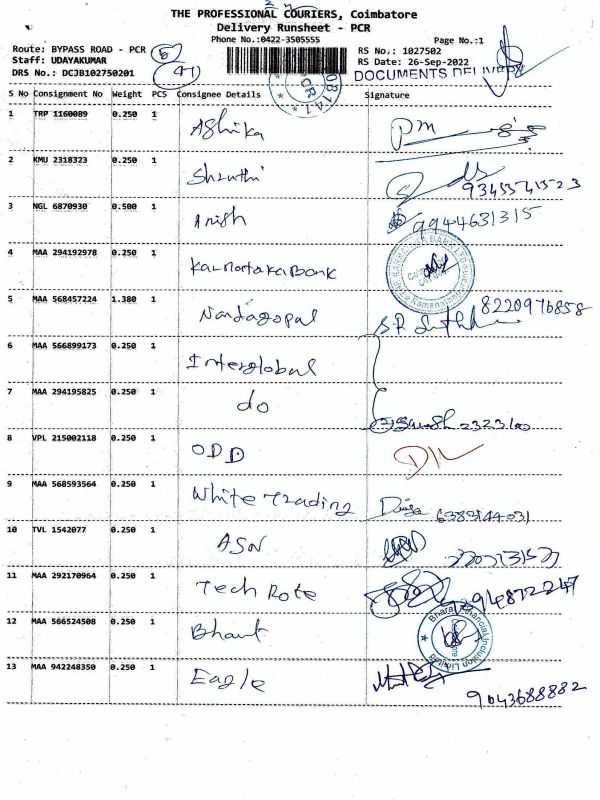 THE PROFESSIONAL COURIERS, Coimbatore
Delivery Runsheet - PCR
Phone No.:0422-3505555
Page No.:1
Route: BYPASS ROAD - PCR
5
RS No.: 1027502
Staff: UDAYAKUMAR
RS Date: 26-Sep-2022
DRS No.: DCJB102750201
DOCUMENTS DELIVERY
S No Consignment No Weight PCS Consignee Details Signature
1 TRP 1160089 0.250 1 Ashika
2 KMU 2318323 0.250 1 Shruthi
3 NGL 6870930 0.500 1 Anish 9944631315
4 MAA 294192978 0.250 1 Karnataka Bank
5 MAA 568457224 1.380 1 Nandagopal 8220976858
6 MAA 566899173 0.250 1 Interglobal
7 MAA 294195825 0.250 1 do
8 VPL 215002118 0.250 1 ODD
9 MAA 568593564 0.250 1 White Trading
10 TVL 1542077 0.250 1 ASN
11 MAA 292170964 0.250 1 Tech Rote
12 MAA 566524508 0.250 1 Bharat
13 MAA 942248350 0.250 1 Eagle
9043688882